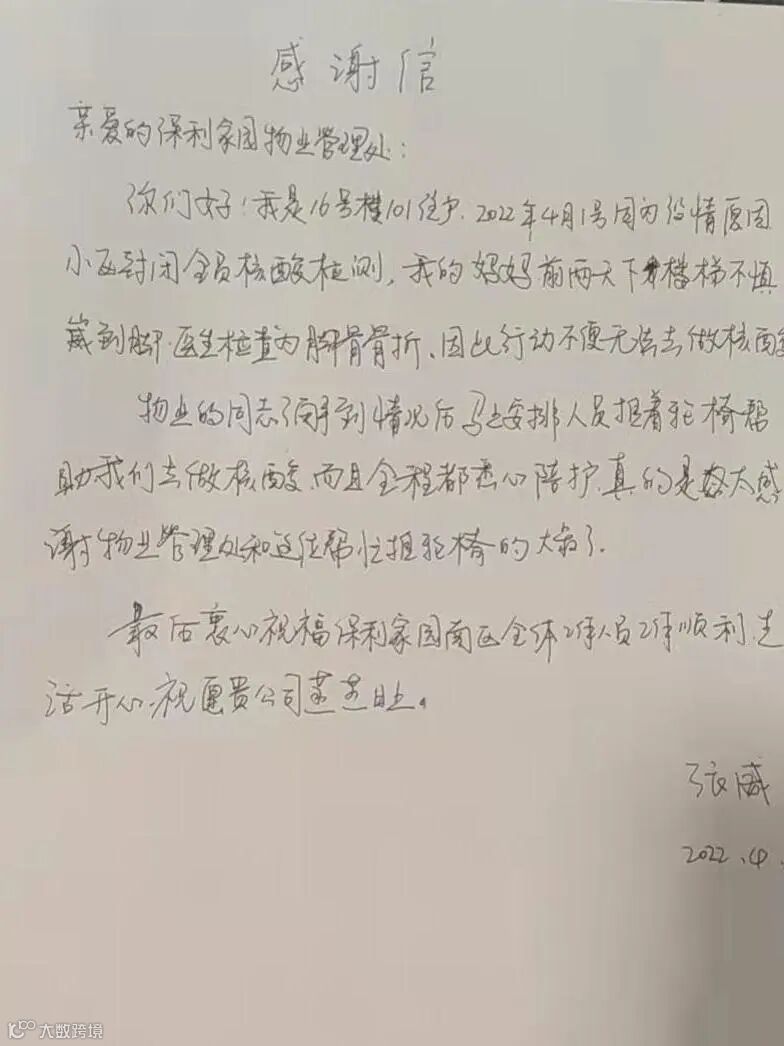 感谢信
亲爱的保利家园物业管理处：
你们好！我是16号楼101住户.2022年4月1号因为役情原因
小区封闭全员核酸检测，我的妈妈前两天下楼梯不慎
崴到脚.医生检查为脚骨骨折、因此行动不便无法去做核酸
物业的同志了解到情况后马上安排人员推着轮椅帮
助我们去做核酸.而且全程都悉心陪护.真的是太感
谢物业管理处和这位帮忙推轮椅的大叔了.
最后衷心祝福保利家园南区全体工作人员工作顺利.生
活开心.祝愿贵公司蒸蒸日上。
张威
2022.4.
大数跨境